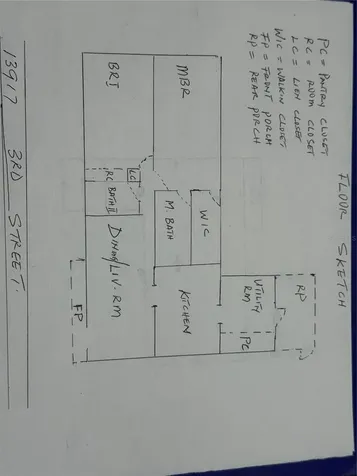 FLOOR SKETCH
PC = PANTRY CLOSET
RC = ROOM CLOSET
LC = LIEN CLOSET
WIC = WALKIN CLOSET
FP = FRONT PORCH
RP = REAR PORCH
RP
UTILITY
RM
PC
MBR
WIC
M. BATH
KITCHEN
BR1
LC
RC
BATH II
DINING/LIV. RM
FP
13917 3RD STREET.